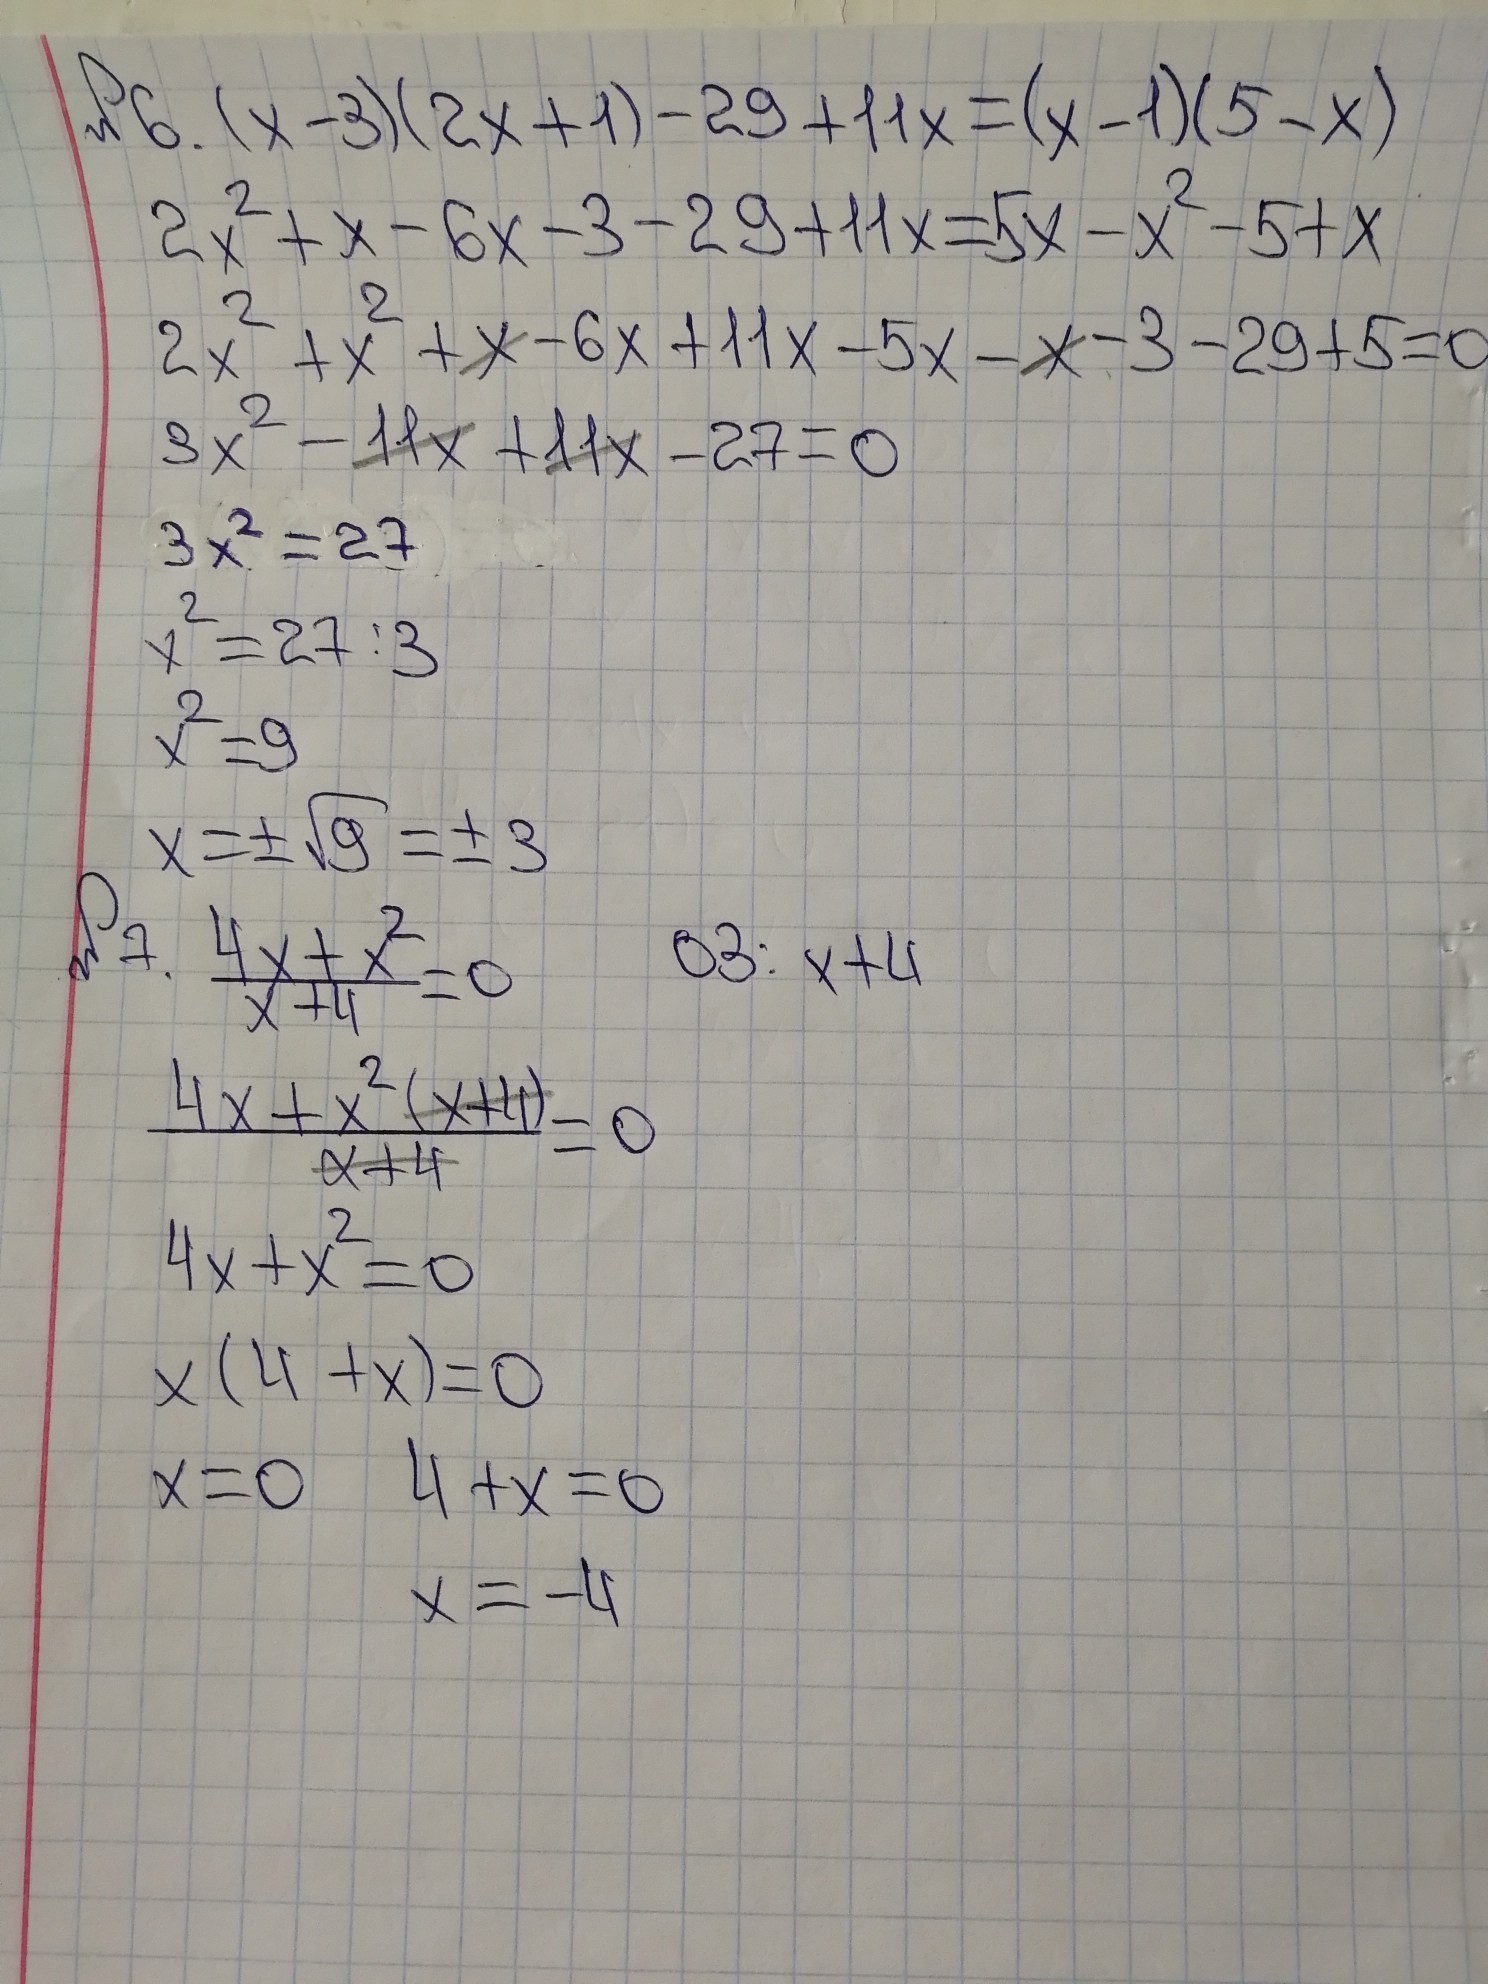 №6. (x-3)(2x+1)-29+11x=(x-1)(5-x)
2x²+x-6x-3-29+11x=5x-x²-5+x
2x²+x²+x-6x+11x-5x-x-3-29+5=0
3x²-11x+11x-27=0
3x²=27
x²=27:3
x²=9
x=±√9=±3
№7. (4x+x²)/(x+4)=0 ОЗ: x+4
(4x+x²(x+4))/(x+4)=0
4x+x²=0
x(4+x)=0
x=0 4+x=0
x=-4